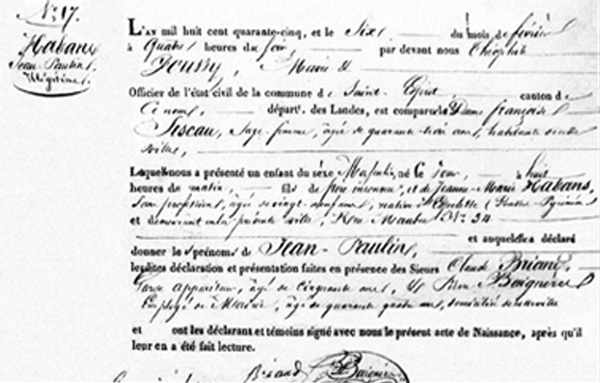 N.° 17.
Habans
Jean-Paulin
L'AN mil huit cent quarante-cinq, et le Six du mois de février
à quatre heures du soir, par devant nous Théophile
Maire
Officier de l'état civil de la commune de Saint-Esprit canton de
Ce nom, départ. des Landes, est comparue Dame françoise
sage-femme, âgée de quarante-trois ans, habitante
ville,
Laquelle nous a présenté un enfant du sèxe Masculin, né Ce Jour, à huit
heures du matin, fils de père inconnu, et de Jeanne-Marie Habans,
sans profession, âgée de vingt-neuf ans, native d'Espelette (Basses-Pyrénées)
et demeurant en la présente ville, Rue Maubec N.° 34
et auquel elle a déclaré
donner les prénoms de Jean-Paulin,
lesdites déclaration et présentation faites en présence des Sieurs Claude Briand,
appariteur, âgé de Cinquante ans, et Baignères
Employé de Mairie, âgé de quarante ans,
et ont les déclarant et témoins signé avec nous le présent acte de Naissance, après qu'il
leur en a été fait lecture.
Briand Baignères